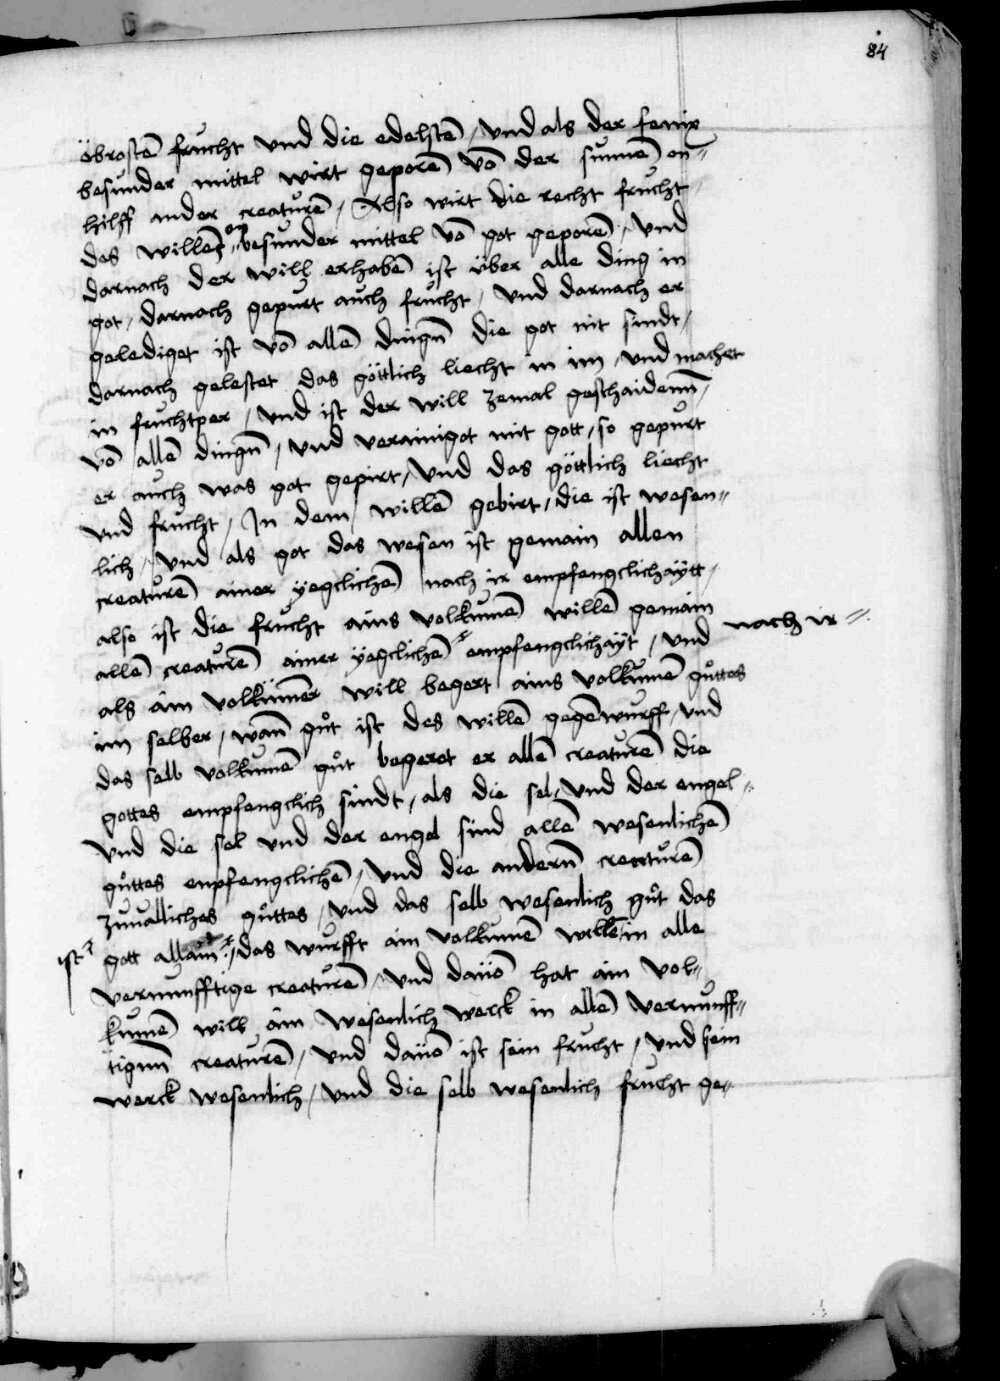 84
öbrosten̄ frucht vnd die edelsten̄ / vnd als der fenix
besunder mittel wirt geporen̄ vō der sunnen̄ on̄=
hilff ander creaturen̄ / Also wirt die recht frucht
des willens on besunder mittel vō got geporen̄ / vnd
darnach der will erhaben̄ ist über alle ding in
got / darnach gepurt auch frucht / vnd darnach er
gelediget ist vō allen̄ dingn̄ die got nit sindt /
darnach gelestet das göttlich liecht in im / vnd machet
in fruchtper / vnd ist der will zemal geschaidenn̄ /
vō allen̄ dingn̄ / vnd verainigot mit gott / so gepurt
er auch was got gepirt / vnd das göttlich liecht
vnd frucht / In dem willen̄ gebirt / die ist wesen=
lich / vnd als got das wesen ist gemain allen
creaturen̄ ainer yegclichen̄ nach ir empfengclichaÿtt /
also ist die frucht ains volkumen̄ willen̄ gemain
allen̄ creaturen̄ ainer ÿegclichen̄ empfengclichaÿt / vnd nach ir =
als ain volkumer will begert ains volkumen̄ gůttes
im selber / wan̄ gůt ist des willen̄ gegen̄wurff / vnd
das selb volkumen̄ gůt begeret er allen̄ creaturen̄ die
gottes empfengclich sindt / als die sel / vnd der engel =
vnd die sel vnd der engel sind allen̄ wesenlichen̄
gůttes enpfengclichen̄ / vnd die andern̄ creaturen̄
zuualliches gůttes / vnd das selb wesenlich gůt das
ist gott allain / das wurfft ain volkumen̄ willen̄ in alle
vernunfftige creaturen̄ / vnd dauō hat ain vol=
kumen̄ will ain wesenlich werck in allen̄ vernunff=
tigenn̄ creaturen̄ / vnd dauō ist sein frucht / vnd sein
werck wesenlich / vnd die selb wesenlich frucht ge=